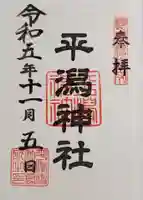 奉拝
平潟神社
令和五年十一月五日